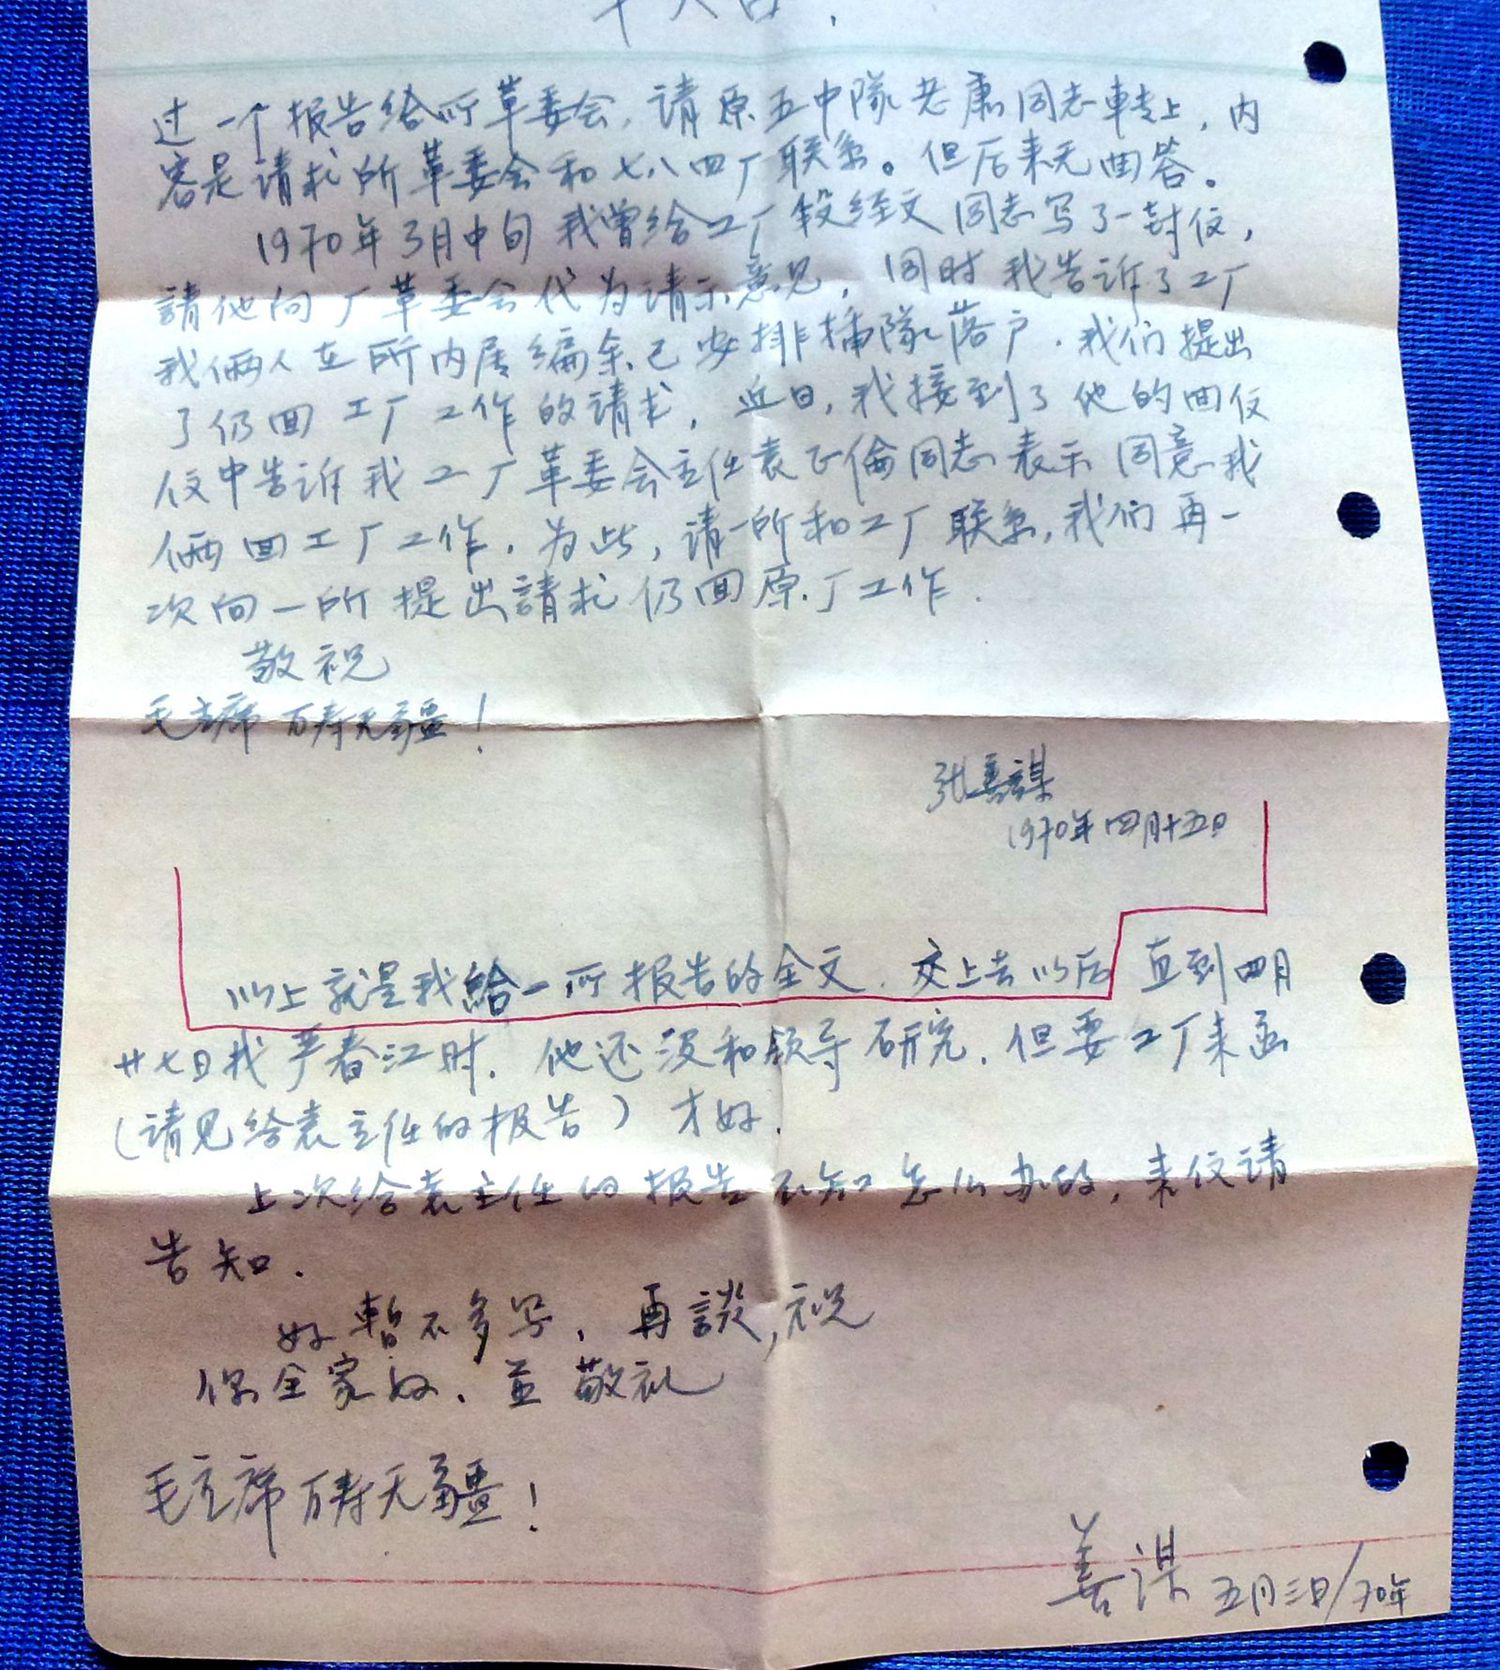 过一个报告给所革委会，请原五中隊老肅同志转上，内
容是请求所革委会和七八四厂联系。但后来无回答。
1970年3月中旬我曾给工厂段经文同志写了一封信，
請他向厂革委会代为请示意见，同时我告诉了工厂
我俩人在所内居编余已安排插隊落户．我们提出
了仍回工厂工作的请求，近日，我接到了他的回信
信中告诉我工厂革委会主任袁正倫同志表示同意我
俩回工厂工作．为此，请一所和工厂联系，我们再一
次向一所提出請求仍回原厂工作．
敬祝
毛主席万寿无疆！
张善謀
1970年四月十五日
以上就是我給一所报告的全文．交上去以后直到四月
廿七日找严春江时．他还没和领导研究．但要工厂来函
（请见给袁主任的报告）才好．
上次给袁主任的报告不知怎么办的，来信请
告知．
好暫不多写，再談，祝
你全家好．並敬礼
毛主席万寿无疆！
善謀 五月三日/70年